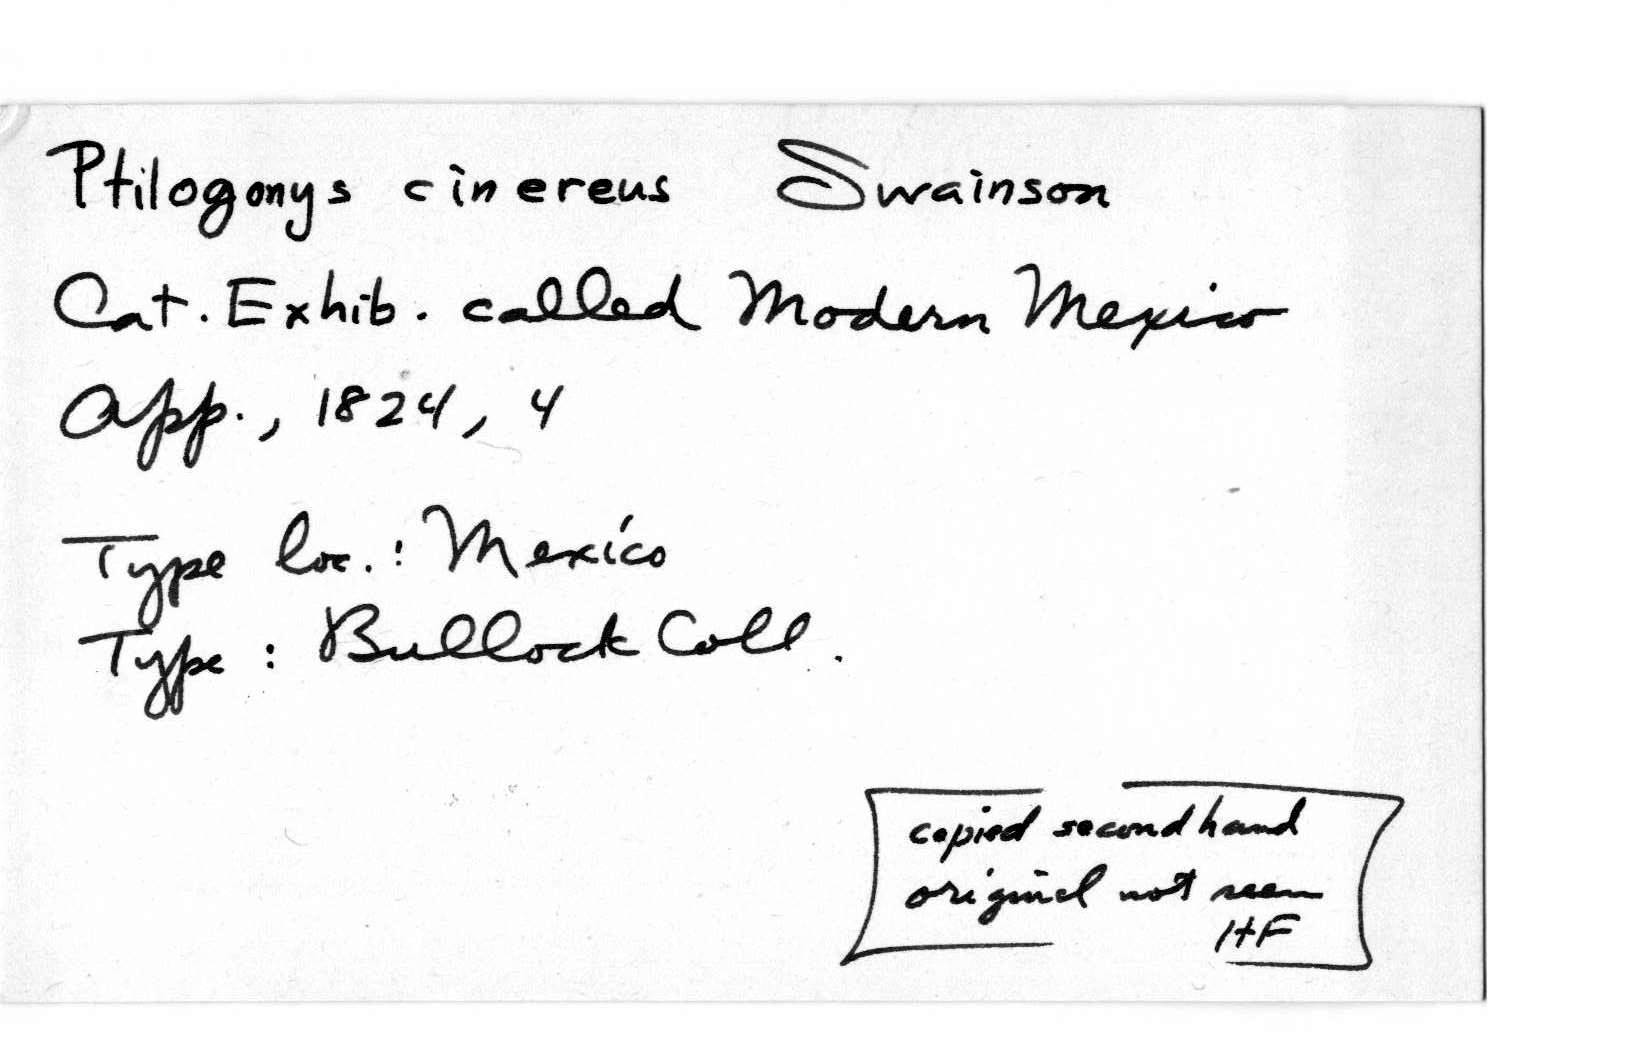 Ptilogonys cinereus Swainson
Cat. Exhib. called Modern Mexico
App., 1824, 4
Type loc.: Mexico
Type: Bullock Coll.
copied secondhand
original not seen
HF